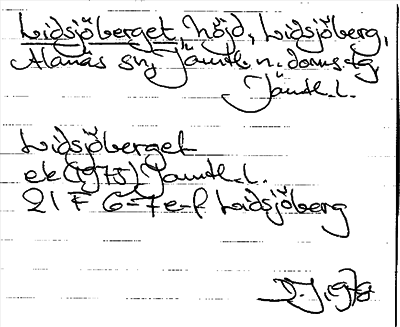 Lidsjöberget, höjd, Lidsjöberg,
Alanäs sn, Jämtl. n. doms.tg,
Jämtl. l.
Lidsjöberget
ek (1975) Jämtl. l.
21 F 6-7 e-f Lidsjöberg
1978